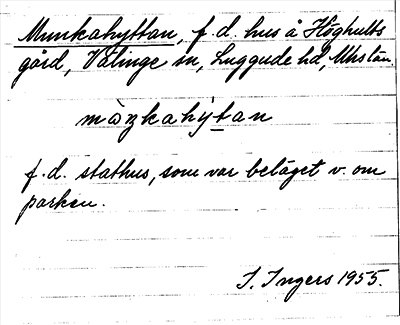 Munkahyttan, f. d. hus å Höghults
gård, Välinge sn, Luggude hd, Mhs län.
màŋkahý̱tan
f. d. stathus, som var beläget v. om
parken.
I. Ingers 1955.